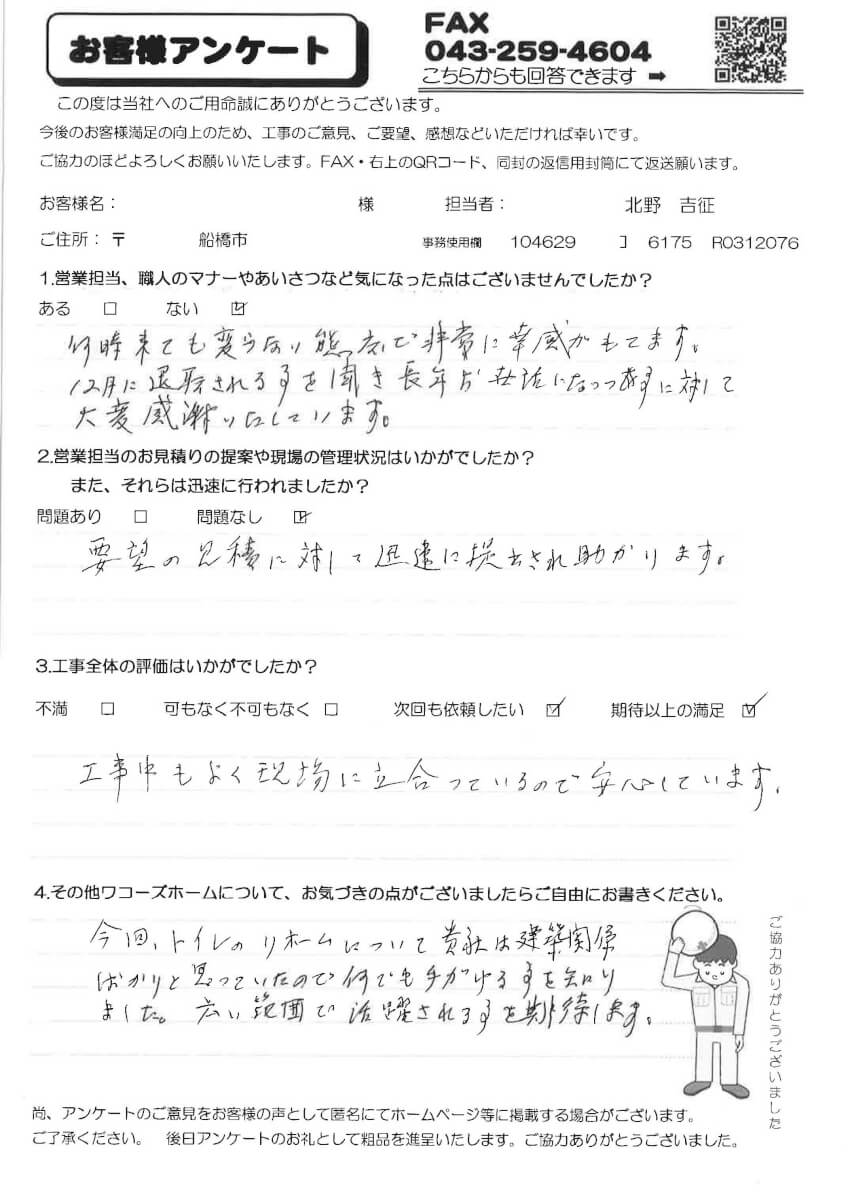 お客様アンケート
FAX
043-259-4604
こちらからも回答できます ➡
この度は当社へのご用命誠にありがとうございます。
今後のお客様満足の向上のため、工事のご意見、ご要望、感想などいただければ幸いです。
ご協力のほどよろしくお願いいたします。FAX・右上のQRコード、同封の返信用封筒にて返送願います。
お客様名： 様 担当者： 北野 吉征
ご住所：〒 船橋市 事務使用欄 104629 コ 6175 R0312076
1.営業担当、職人のマナーやあいさつなど気になった点はございませんでしたか？
ある □ ない ☑
何時来ても変らない態度で非常に好感がもてます。
12月に退職される事を聞き長年お世話になつつあすに対して
大変感謝いたしています。
2.営業担当のお見積りの提案や現場の管理状況はいかがでしたか？
また、それらは迅速に行われましたか？
問題あり □ 問題なし ☑
要望の見積に対して迅速に提出され助かります。
3.工事全体の評価はいかがでしたか？
不満 □ 可もなく不可もなく □ 次回も依頼したい ☑ 期待以上の満足 ☑
工事中もよく現場に立合っているので安心しています。
4.その他ワコーズホームについて、お気づきの点がございましたらご自由にお書きください。
今回、トイレのリホームについて貴社は建築関係
ばかりと思っていたので何でも手がける事を知り
ました。広い範囲で活躍される事を期待します。
ご協力ありがとうございました
尚、アンケートのご意見をお客様の声として匿名にてホームページ等に掲載する場合がございます。
ご了承ください。 後日アンケートのお礼として粗品を進呈いたします。ご協力ありがとうございました。